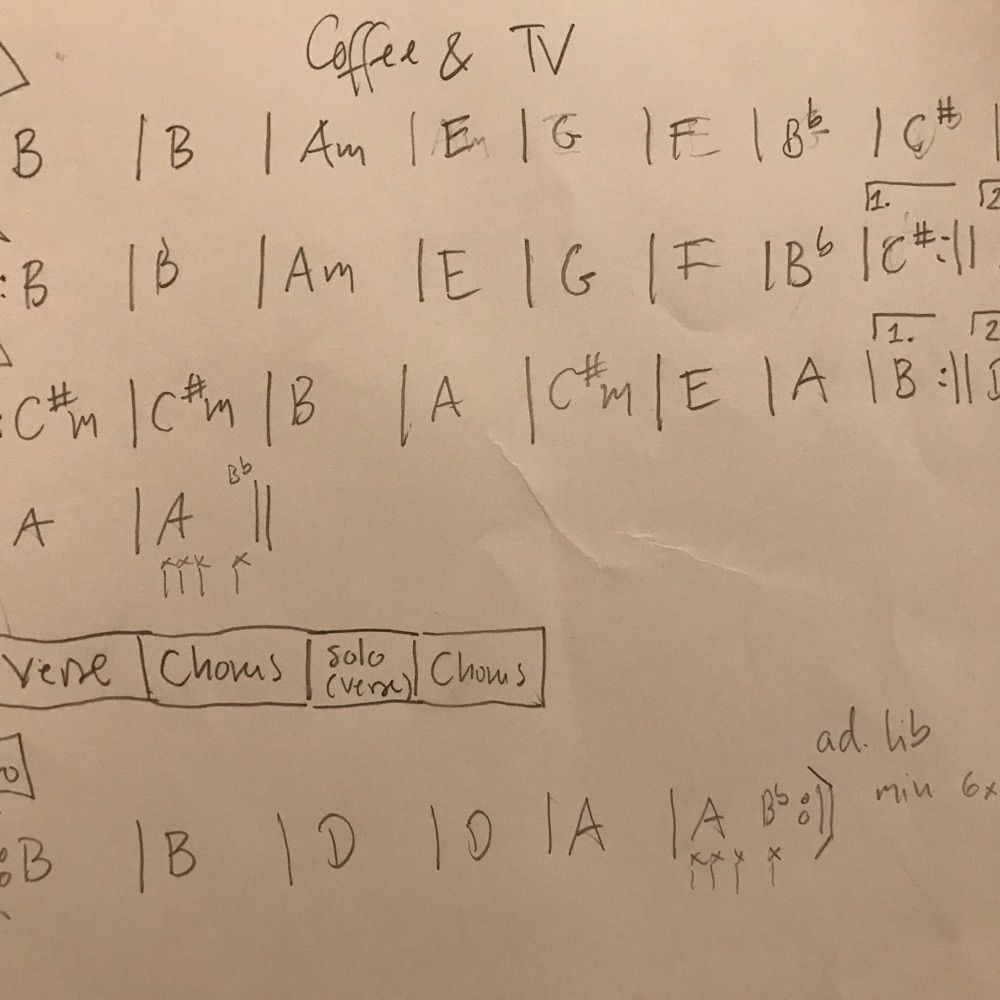 Coffee & TV
B | B | Am | E | G | F | Bb | C# |
1. 2
:B | B | Am | E | G | F | Bb | C# :||
1. 2
:C#m | C#m | B | A | C#m | E | A | B :||
Bb
A | A ||
Verse | Chorus | solo (verse) | Chorus
ad. lib
min 6x
:B | B | D | D | A | A Bb :||